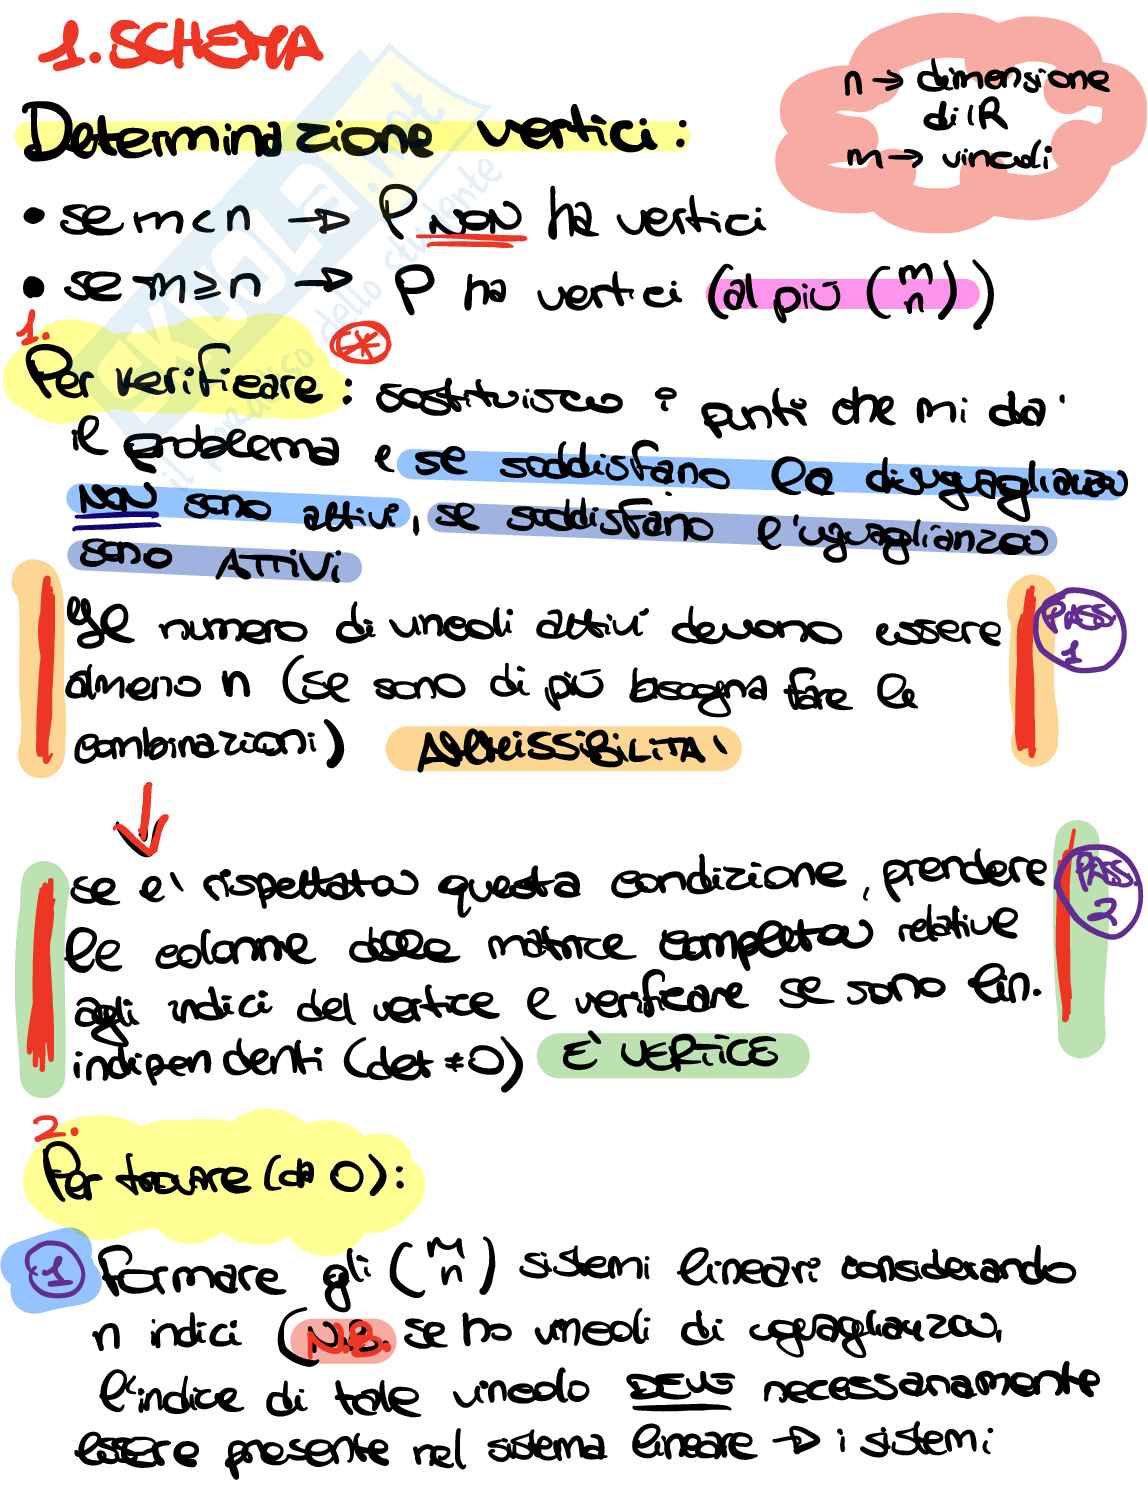 1. SCHEMA
n → dimensione
di IR
m → vincoli
Determinazione vertici:
• se m < n → P NON ha vertici
• se m ≥ n → P ha vertici (al più (m n))
1.
Per verificare: sostituisco i punti che mi da'
il problema e se soddisfano la disuguaglianza
NON sono attivi, se soddisfano l'uguaglianza
sono ATTIVI
Il numero di vincoli attivi devono essere
almeno n (se sono di più bisogna fare le
combinazioni) AMMISSIBILITA'
PASS. 1
se e' rispettata questa condizione, prendere
le colonne della matrice completa relative
agli indici del vertice e verificare se sono lin.
indipendenti (det ≠ 0) E' VERTICE
PASS. 2
2.
Per trovare (da 0):
1 Formare gli (m n) sistemi lineari considerando
n indici (N.B. se ho vincoli di uguaglianza,
l'indice di tale vincolo DEVE necessariamente
essere presente nel sistema lineare → i sistemi